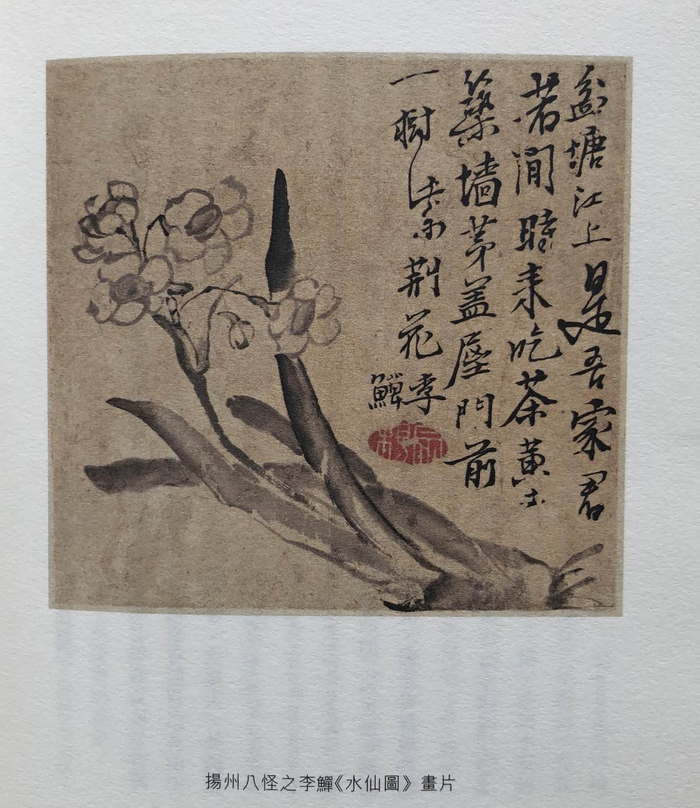 盆塘江上是吾家君
若閒時来吃茶黄土
築墙茅盖屋門前
一樹紫荆花
李鱓
揚州八怪之李鱓《水仙圖》畫片